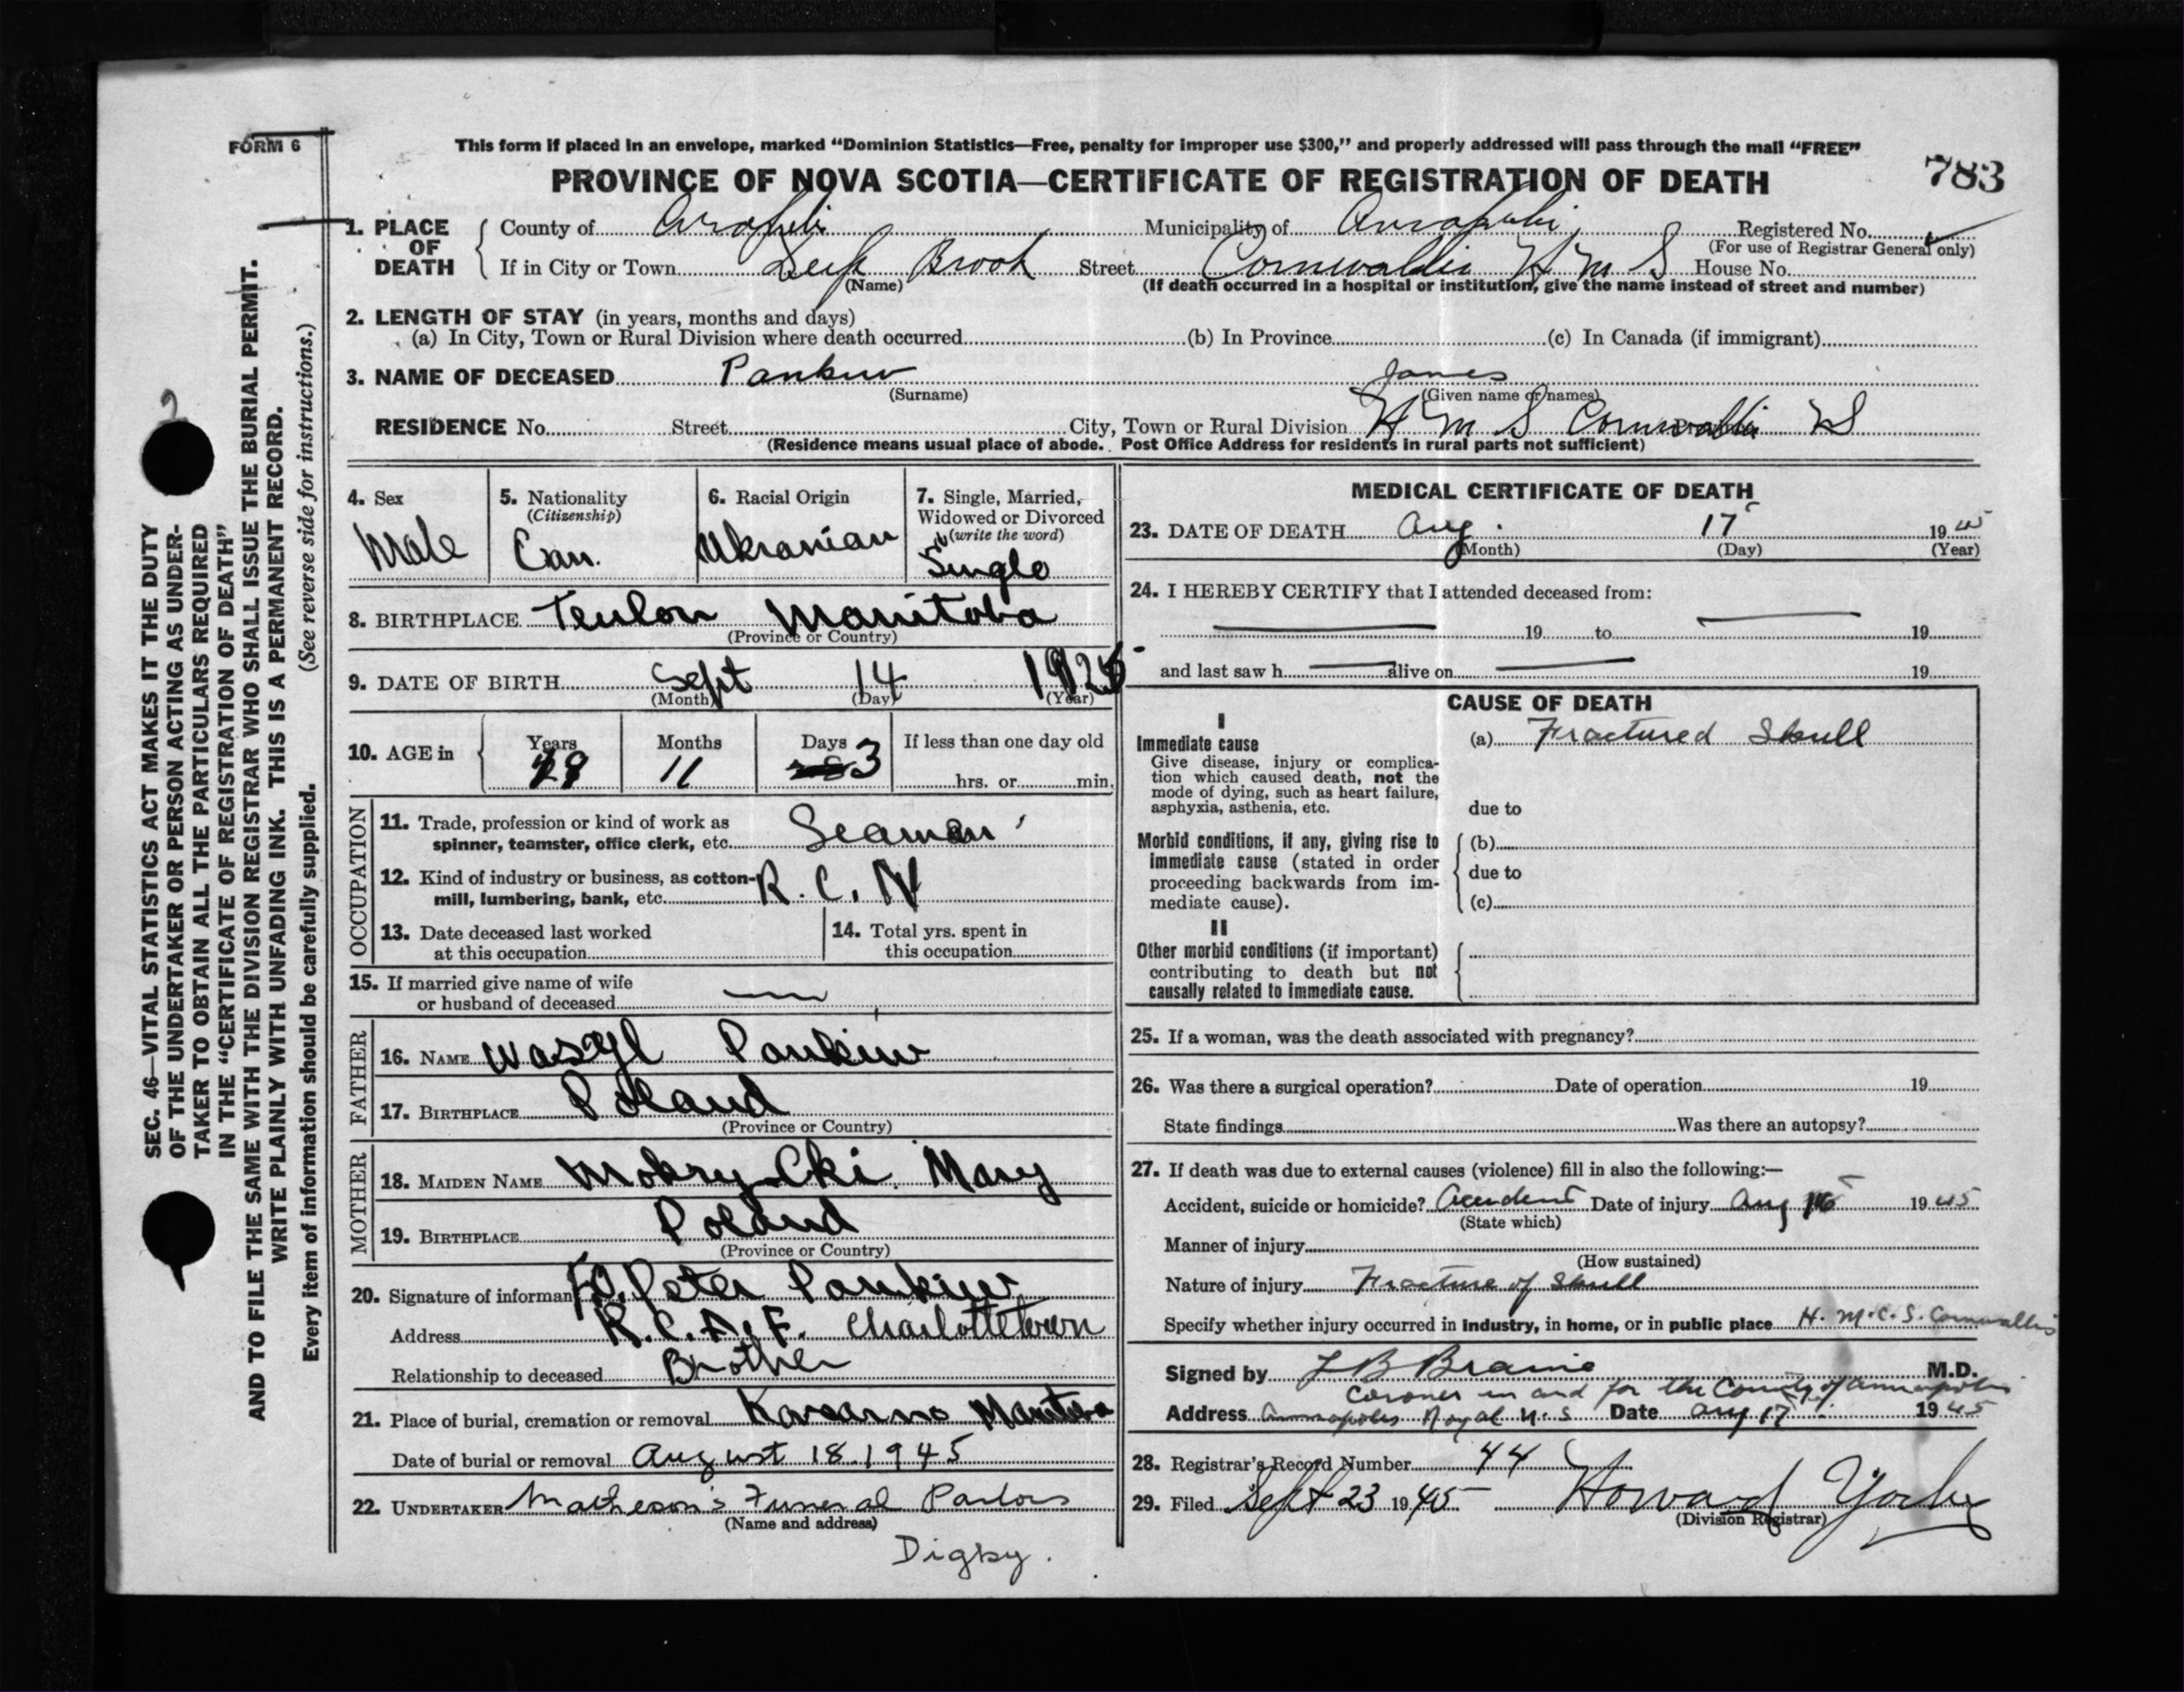 FORM 6
This form if placed in an envelope, marked “Dominion Statistics—Free, penalty for improper use $300,” and properly addressed will pass through the mail “FREE”
PROVINCE OF NOVA SCOTIA—CERTIFICATE OF REGISTRATION OF DEATH
783
1. PLACE OF DEATH
County of Municipality of Registered No.
(For use of Registrar General only)
If in City or Town Deep Brook Street Cornwallis H M S House No.
(Name) (If death occurred in a hospital or institution, give the name instead of street and number)
2. LENGTH OF STAY (in years, months and days)
(a) In City, Town or Rural Division where death occurred (b) In Province (c) In Canada (if immigrant)
3. NAME OF DECEASED Pankiw James
(Surname) (Given name or names)
RESIDENCE No. Street City, Town or Rural Division H M S Cornwallis N S
(Residence means usual place of abode. Post Office Address for residents in rural parts not sufficient)
4. Sex
Male
5. Nationality
(Citizenship)
Can.
6. Racial Origin
Ukranian
7. Single, Married,
Widowed or Divorced
(write the word)
Single
8. BIRTHPLACE Teulon Manitoba
(Province or Country)
9. DATE OF BIRTH Sept 14
(Month) (Day) (Year)
10. AGE in
Years Months Days If less than one day old
11 3
hrs. or min.
OCCUPATION
11. Trade, profession or kind of work as
spinner, teamster, office clerk, etc. Seaman
12. Kind of industry or business, as cotton-
mill, lumbering, bank, etc. R. C. N
13. Date deceased last worked
at this occupation
14. Total yrs. spent in
this occupation
15. If married give name of wife
or husband of deceased
FATHER
16. NAME Wasyl Pankiw
17. BIRTHPLACE Poland
(Province or Country)
MOTHER
18. MAIDEN NAME Mary
19. BIRTHPLACE Poland
(Province or Country)
20. Signature of informant Peter Pankiw
Address R.C.A.F. Charlottetown
Relationship to deceased Brother
21. Place of burial, cremation or removal
Date of burial or removal August 18 1945
22. UNDERTAKER Matheson's Funeral Parlors
(Name and address)
Digby.
MEDICAL CERTIFICATE OF DEATH
23. DATE OF DEATH Aug. 17 1945
(Month) (Day) (Year)
24. I HEREBY CERTIFY that I attended deceased from:
19 to 19
and last saw h alive on 19
CAUSE OF DEATH
I
Immediate cause
Give disease, injury or complica-
tion which caused death, not the
mode of dying, such as heart failure,
asphyxia, asthenia, etc.
(a) Fractured Skull
due to
Morbid conditions, if any, giving rise to
immediate cause (stated in order
proceeding backwards from im-
mediate cause).
(b)
due to
(c)
II
Other morbid conditions (if important)
contributing to death but not
causally related to immediate cause.
25. If a woman, was the death associated with pregnancy?
26. Was there a surgical operation? Date of operation 19
State findings Was there an autopsy?
27. If death was due to external causes (violence) fill in also the following:—
Accident, suicide or homicide? Accident Date of injury Aug 16 1945
(State which)
Manner of injury
(How sustained)
Nature of injury Fracture of Skull
Specify whether injury occurred in industry, in home, or in public place H. M.C.S. Cornwallis
Signed by L B Braine M.D.
Coroner in and for the County of Annapolis
Address Annapolis Royal N.S Date Aug 17 1945
28. Registrar's Record Number 44
29. Filed Sept 23 1945 Howard
(Division Registrar)
SEC. 46—VITAL STATISTICS ACT MAKES IT THE DUTY
OF THE UNDERTAKER OR PERSON ACTING AS UNDER-
TAKER TO OBTAIN ALL THE PARTICULARS REQUIRED
IN THE “CERTIFICATE OF REGISTRATION OF DEATH”
AND TO FILE THE SAME WITH THE DIVISION REGISTRAR WHO SHALL ISSUE THE BURIAL PERMIT.
WRITE PLAINLY WITH UNFADING INK. THIS IS A PERMANENT RECORD.
Every item of information should be carefully supplied. (See reverse side for instructions.)
2